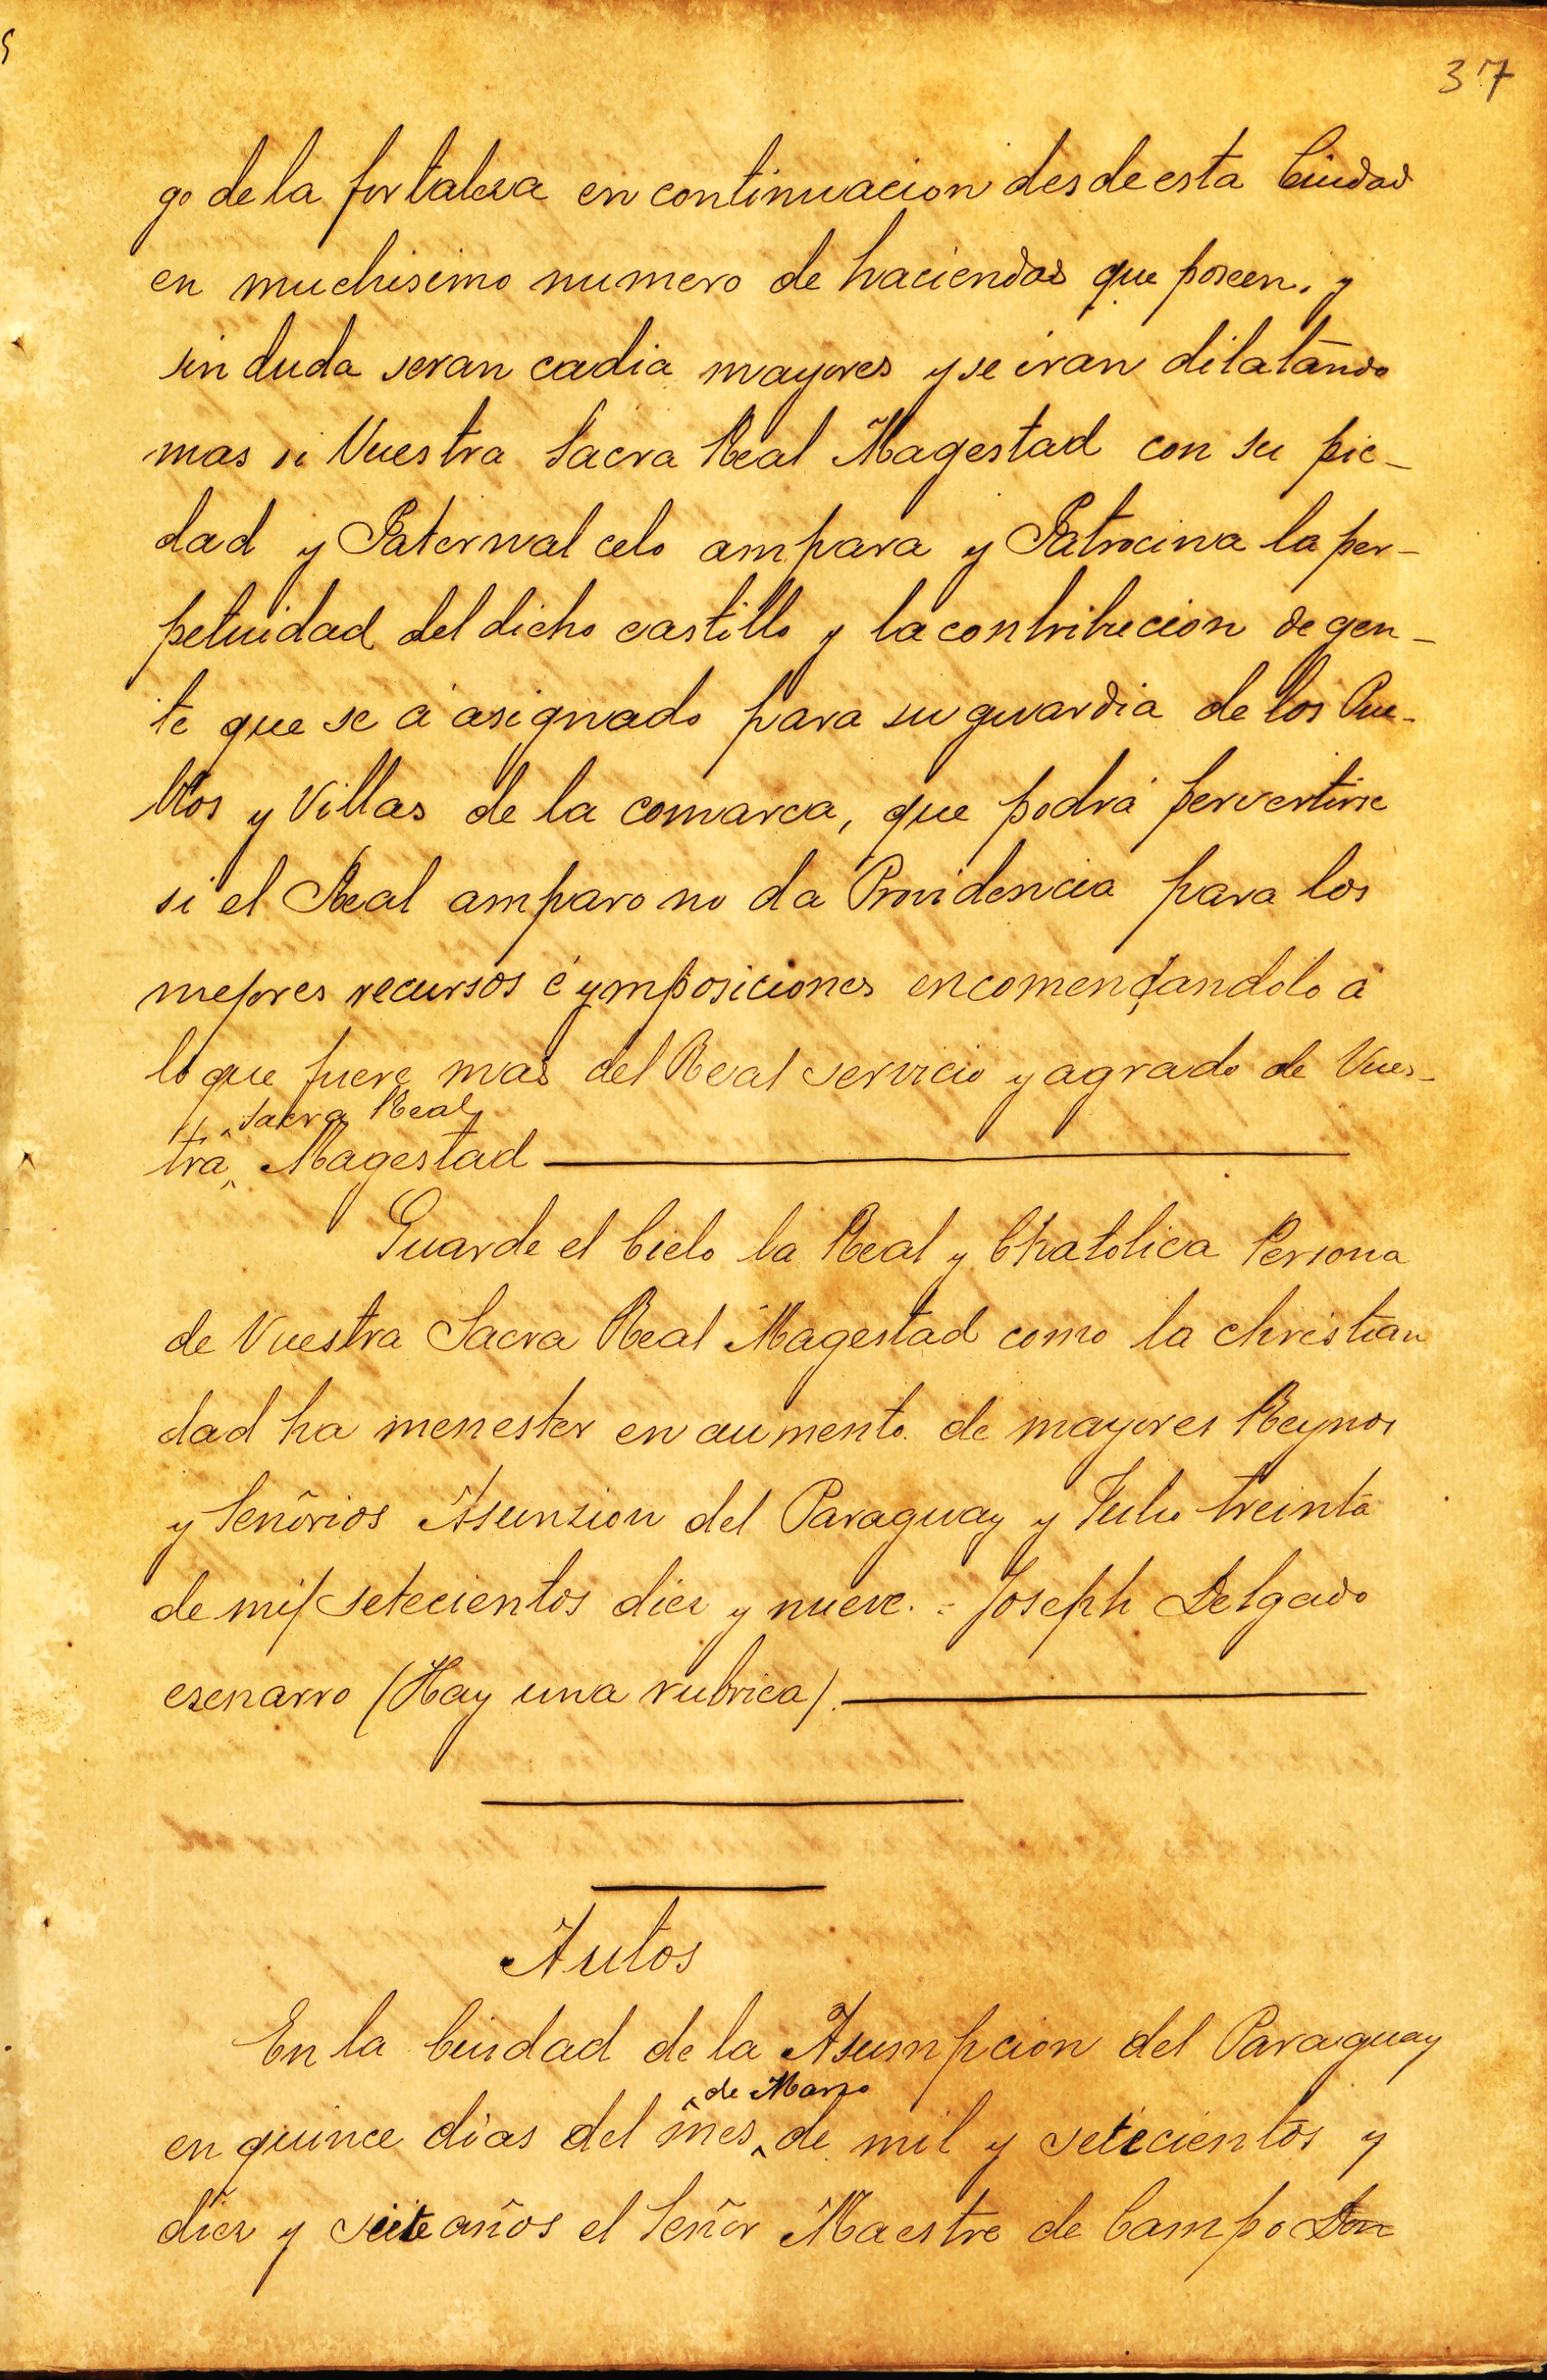 37
go de la fortaleza en continuacion desde esta Ciudad
en muchisimo numero de haciendas que poseen, y
sin duda seran cadia mayores y se iran dilatando
mas si Vuestra Sacra Real Magestad con su pie-
dad y Paternal celo ampara y Patrocina la per-
petuidad del dicho castillo y la contribucion de gen-
te que se á asignado para su guardia de los Pue-
blos y Villas de la comarca, que podrá pervertirse
si el Real amparo no da Providencia para los
mejores recursos é ymposiciones encomendandolo á
lo que fuere mas del Real servicio y agrado de Vues-
sacra Real
tra Magestad
Guarde el Cielo la Real y Chatolica Persona
de Vuestra Sacra Real Magestad como la christian
dad ha menester en aumento de mayores Reynos
y Señorios Asunzion del Paraguay y Julio treinta
de mil setecientos diez y nueve. = Joseph Delgado
ezenarro (Hay una rubrica).
Autos
En la Ciudad de la Asumpcion del Paraguay
de Marzo
en quince dias del mes de mil y setecientos y
diez y siete años el Señor Maestre de Campo Don